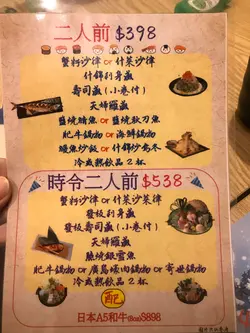 二人前 $398
蟹柳沙律 or 什菜沙律
什錦刺身盛
壽司盛 (小卷付)
天婦羅盛
鹽燒鯖魚 or 鹽燒秋刀魚
肥牛鍋物 or 海鮮鍋物
鰻魚炒飯 or 什錦炒烏冬
冷或熱飲品 2 杯
時令二人前 $538
蟹柳沙律 or 什菜沙律
發板刺身盛
發板壽司盛 (小卷付)
天婦羅盛
脆燒銀雪魚
肥牛鍋物 or 廣島蠔肉鍋物 or 寄世鍋物
冷或熱飲品 2 杯
配
日本A5和牛(6oz)$898